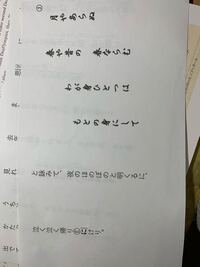 ①
月やあらぬ
春や昔の 春ならむ
わが身ひとつは
もとの身にして
と詠みて、夜のほのぼのと明くるに、
泣く泣く帰りにけり。